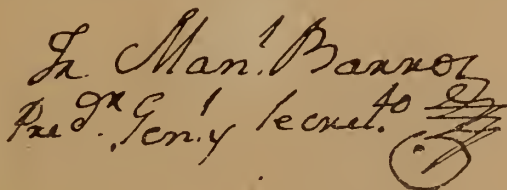 Fr. Man.l Barros
Pred.or Gen.l y Secret.to